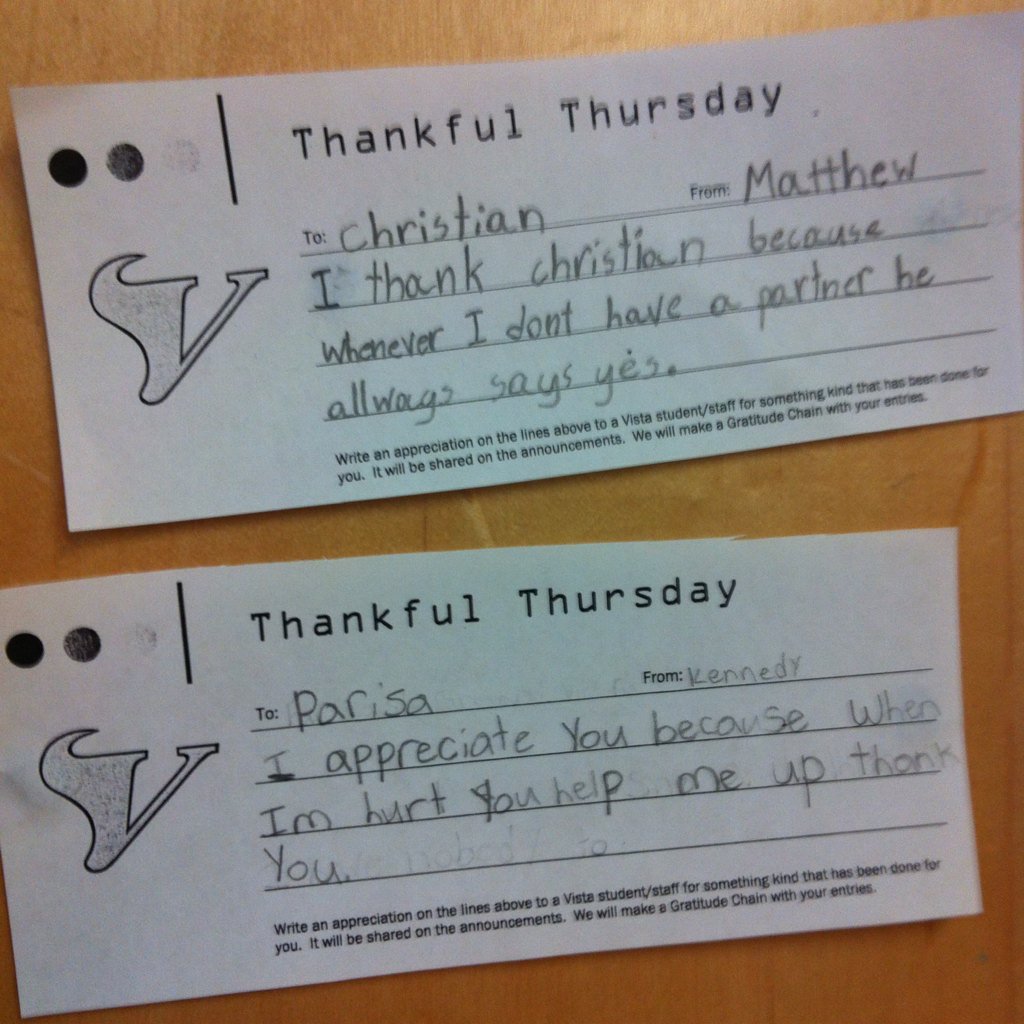 Thankful Thursday
To: Christian From: Matthew
I thank christian because
whenever I dont have a partner he
allways says yes.
Write an appreciation on the lines above to a Vista student/staff for something kind that has been done for
you. It will be shared on the announcements. We will make a Gratitude Chain with your entries.
Thankful Thursday
To: Parisa From: Kennedy
I appreciate You because when
Im hurt you help me up thank
You.
Write an appreciation on the lines above to a Vista student/staff for something kind that has been done for
you. It will be shared on the announcements. We will make a Gratitude Chain with your entries.